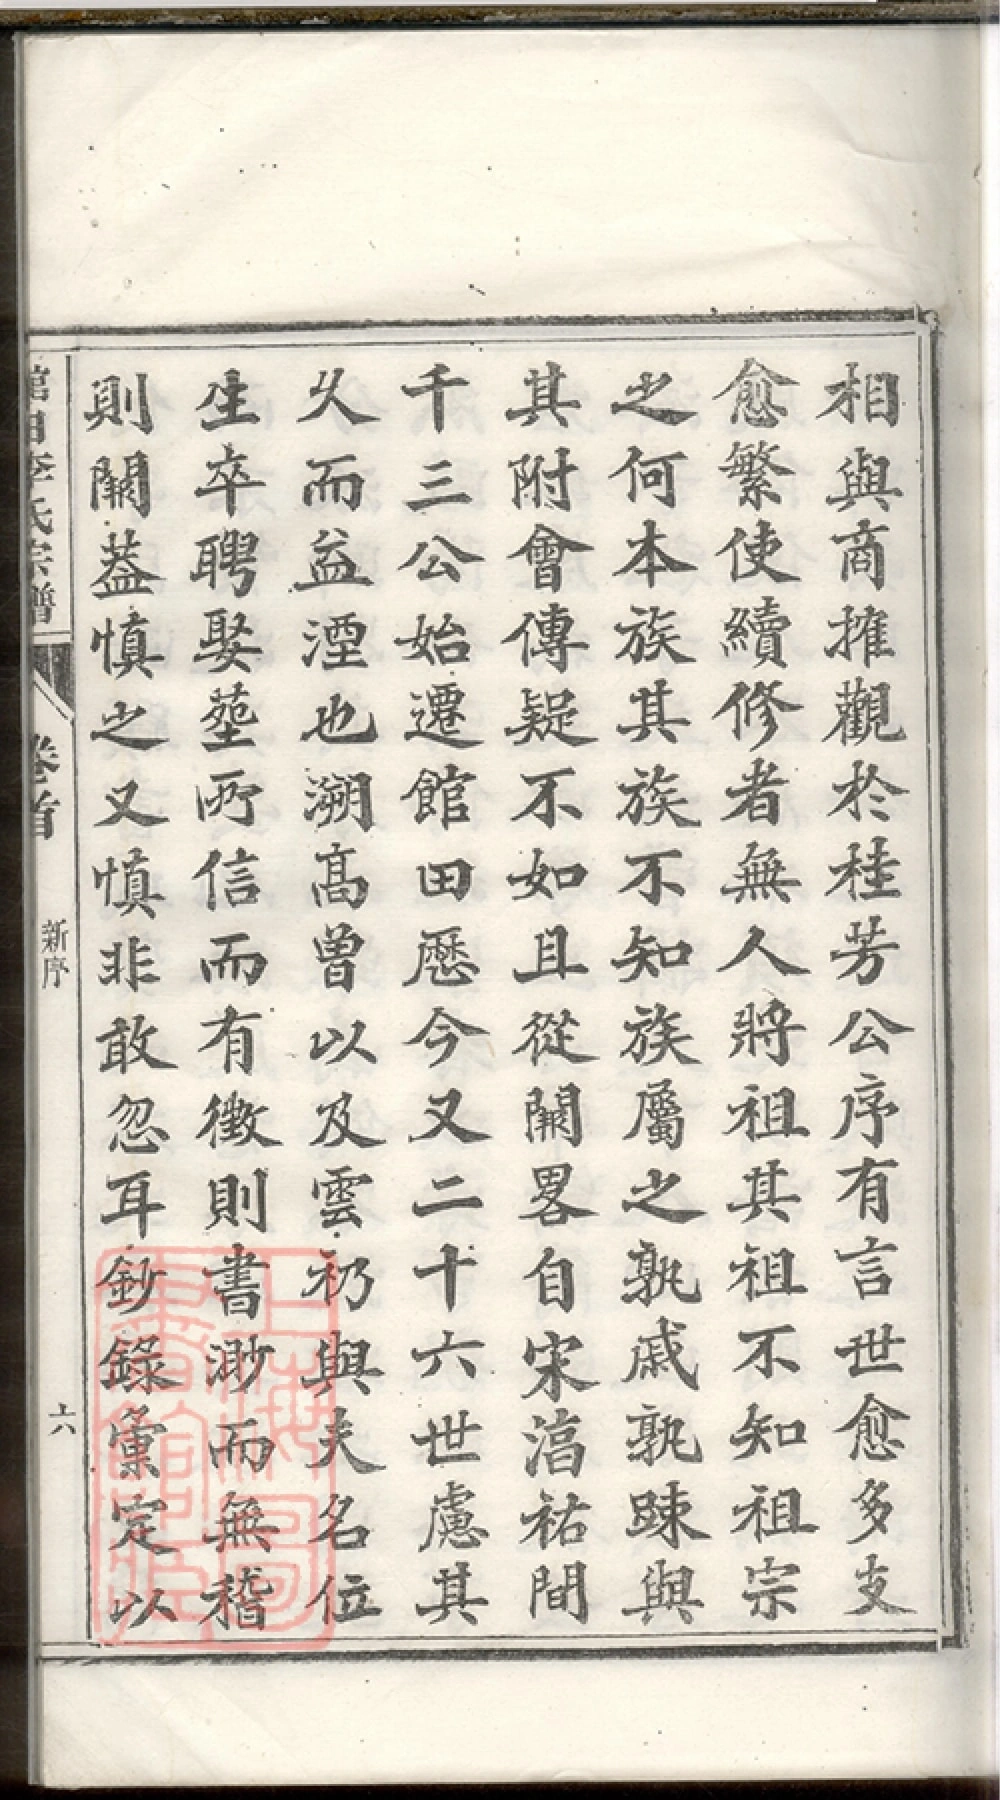 相與商搉觀於桂芳公序有言世愈多支
愈繁使續修者無人將祖其祖不知祖宗
之何本族其族不知族屬之孰戚孰踈與
其附會傳疑不如且從闕畧自宋淳祐間
千三公始遷館田歷今又二十六世慮其
久而益湮也溯高曾以及雲礽與夫名位
生卒聘娶塟所信而有徵則書渺而無稽
則闕葢慎之又慎非敢忽耳鈔錄彙定以
館田李氏宗譜
卷首
新序
六
上海圖書館藏